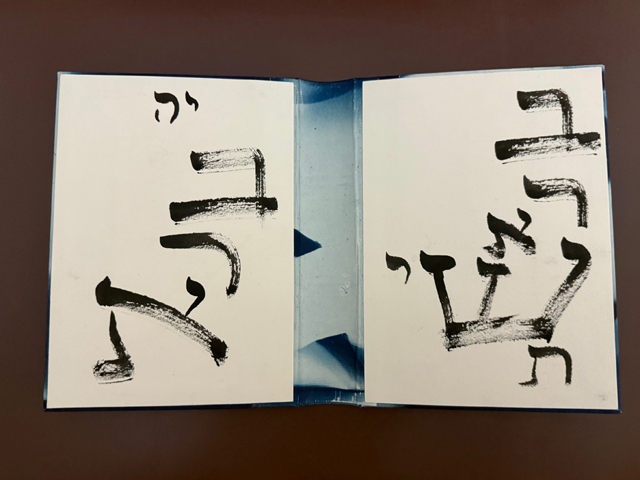 בראשית
יה
ברא